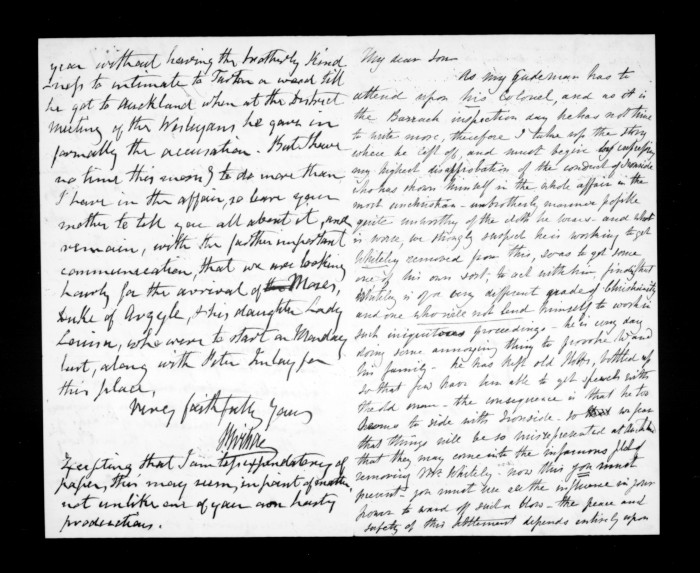 year without having the brotherly Kind
-ness to intimate to Turton a word till
he got to Auckland when at the District
meeting of the Wesleyans he gave in
formally the accusation. But I have
no time this morng to do more than
I have in the affair, so leave your
mother to tell you all about it, and
remain, with the further important
communication, that we are looking
hourly for the arrival of Moses,
Duke of Argyle, & his daughter Lady
Louisa, who were to start on Monday
last, along with Peter Finlay for
this place,
Very faithfully Yours
Excepting that I am of
paper, this may seem, in point of matter,
not unlike one of your own hasty
productions.
My dear Son
As my Gudeman has to
attend upon his Colonel, and as it is
the Barrack inspection day he has not time
to write more, therefore I take up the story
where he left off, and must begin by expressing
my highest disapprobation of the conduct of Ironside
who has shown himself in the whole affair in the
most unchristian - unbrotherly manner possible
quite unworthy of the cloth he wears - and what
is worse, we strongly suspect he is working to get
Whiteley removed from this, so as to get some
one of his own sort, to act with him, finding that
Whiteley is of a very different grade of Christianity
and one who will not lend himself to work in
such iniquitous proceedings - he is every day
doing some annoying thing to provoke W and
his family - he has kept old bottled up
so that few have been able to get speech with
the old man - the consequence is that he too
seems to side with Ironside - so we fear
that things will be so misrepresented at
that they may come into the infamous plot of
removing Mr Whiteley - now this you must
prevent - you must use all the influence in your
power to ward off such a blow - the peace and
safety of this settlement depends entirely upon